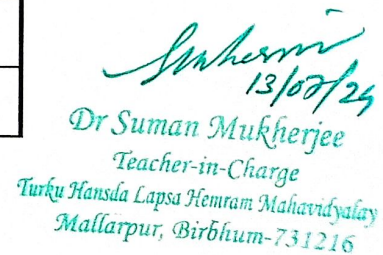 13/02/24
Dr Suman Mukherjee
Teacher-in-Charge
Turku Hansda Lapsa Hemram Mahavidyalay
Mallarpur, Birbhum-731216